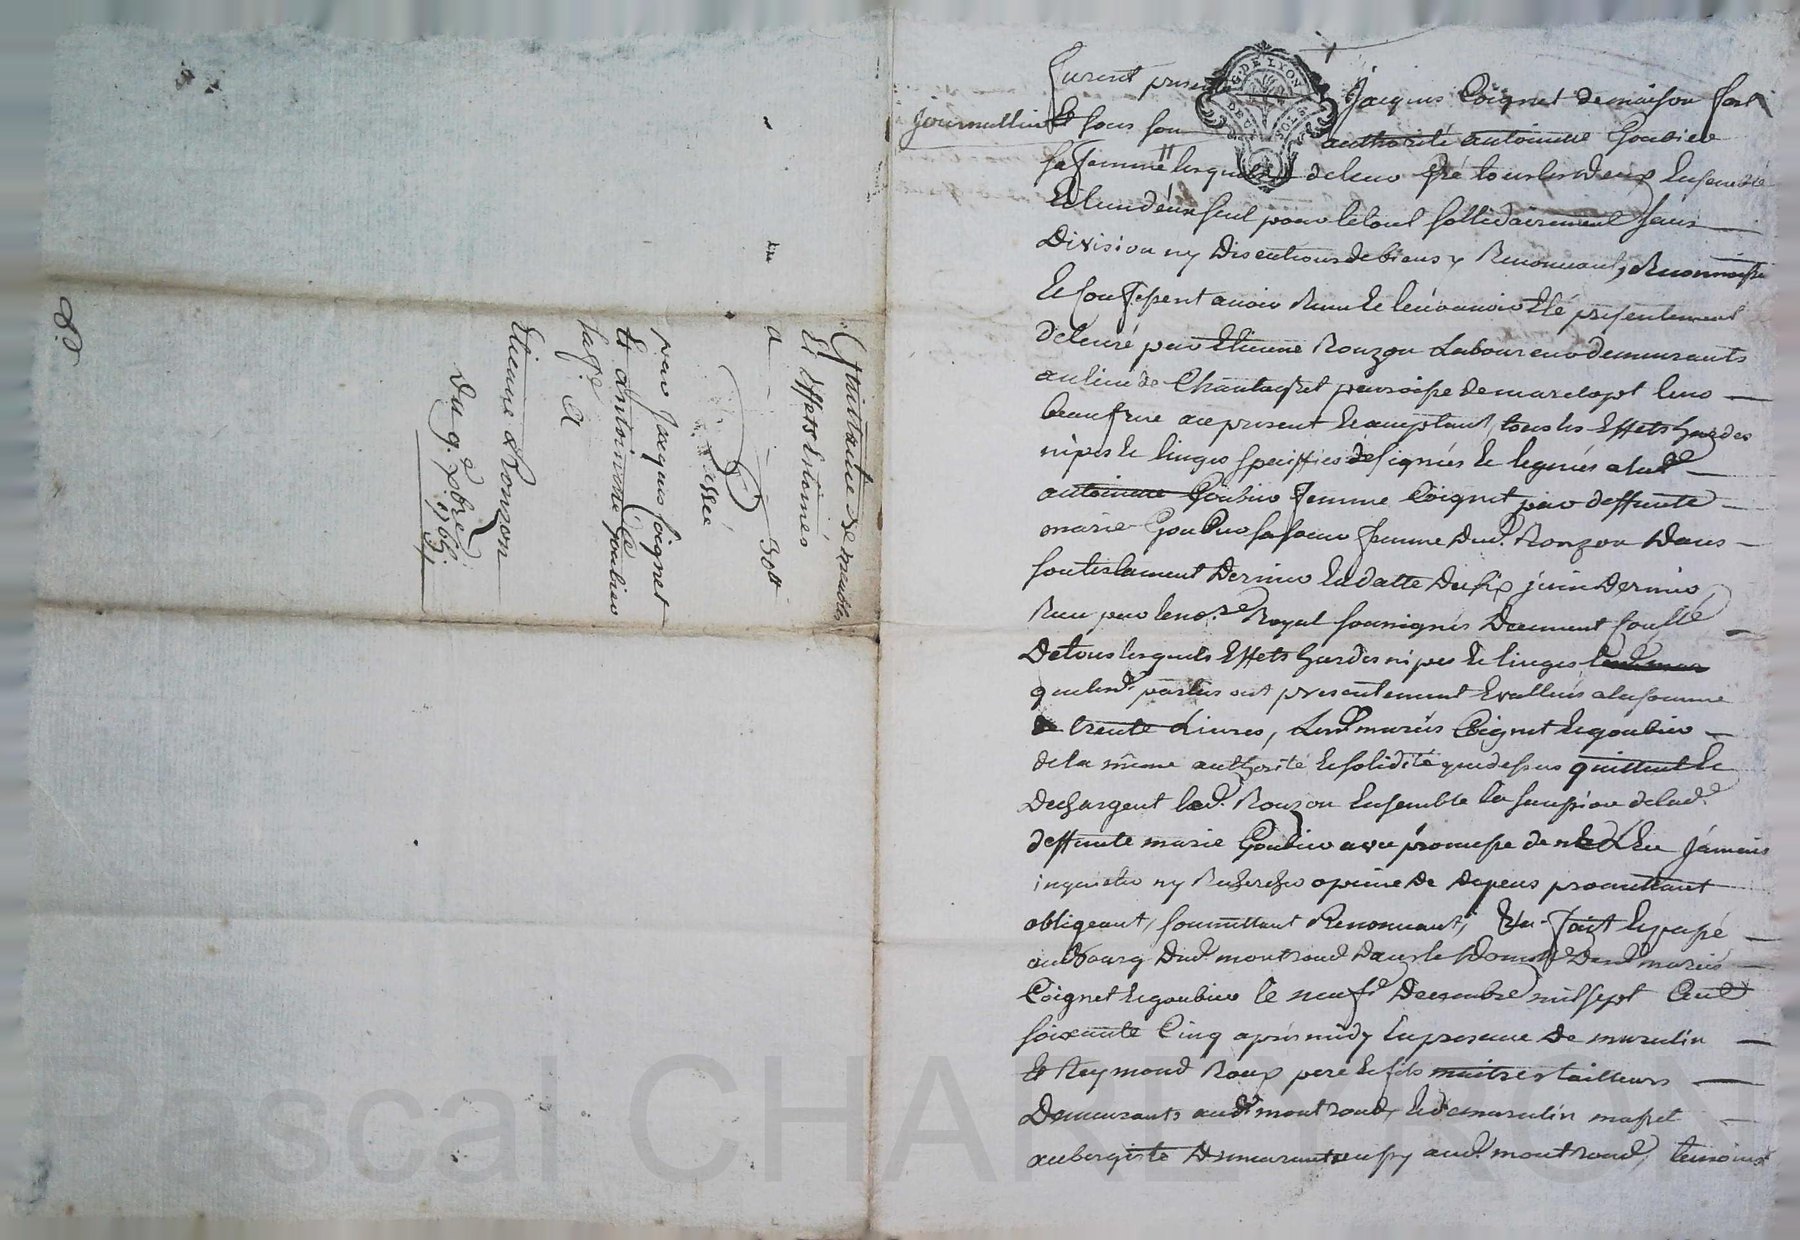 Quittance de meubles
Et Effets Estimés
a - - - 30tt
Passée
par Jacques Coignet
Et antoinette Goubier
sa fe. A
Etienne Ronzon
Du 9.e Xbre 1765
GDE LYON
DEUX SOLS
furent presents Jacques Coignet de maison fort
journallier Et sous son authorité antoinette Goubier
sa femme lesquels de leur gré tous les deux Ensemble
Et l'un d'eux seul pour le tout sollidairement sans
Division ny Discutions de biens y Renonceant, Reconnoisse
Et Confessent avoir Receu Et leur avoir Eté presentement
delivré par Etienne Ronzon Laboureur demeurants
au lieu de Chantagret parroisse de marclopt leur
beaufrere ace present Et acceptant, tous les Effets hardes
nipes Et linges speciffiés désignés Et legués alad.e
antoinette Goubier femme Coignet par deffunte
marie Goubier sa soeur femme Dud. Ronzon Dans
son testament Dernier En datte Du six juin Dernier
Receu par le no.re Royal soussignés Deuement Conollé
De tous lesquels Effets hardes nipes Et linges
que lesd. parties ont presentement Evalluées ala somme
de trente Livres, Lesd. mariés Coignet Et goubier
de la même authorité Et solidité que dessus quittent Et
Dechargent led. Ronzon Ensemble la succession de lad.
deffunte marie Goubier avec promesse de ne Les En Jamais
inquieter ny Rechercher apeine de Depens promettant
obligeant, soumettant Renonceant, Eta. fait Et passé
au Bourg Dud. montrond Dans le Domicille Desd. mariés
Coignet Et goubier le neuf.e Decembre mil sept Cent
soixante Cinq aprés midy En presence De marcelin
Et Reymond Roux pere Et fils maitres tailleurs
Demeurants aud. montrond, Et de marcelin masset
aubergiste Demeurant aussy aud. montrond, temoins
Pascal CHAREYRON